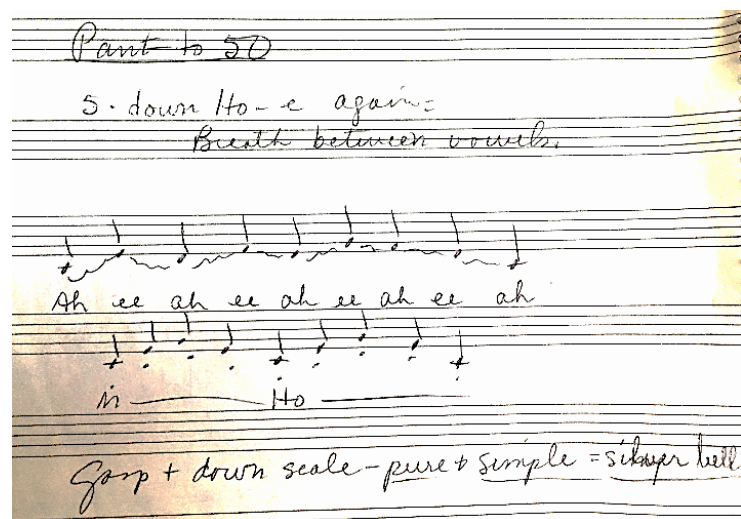 Pant to 50
5. down Ho-e again=
Breath between vowels.
Ah ee ah ee ah ee ah ee ah
Ho
Gasp + down scale - pure + simple = silver bell